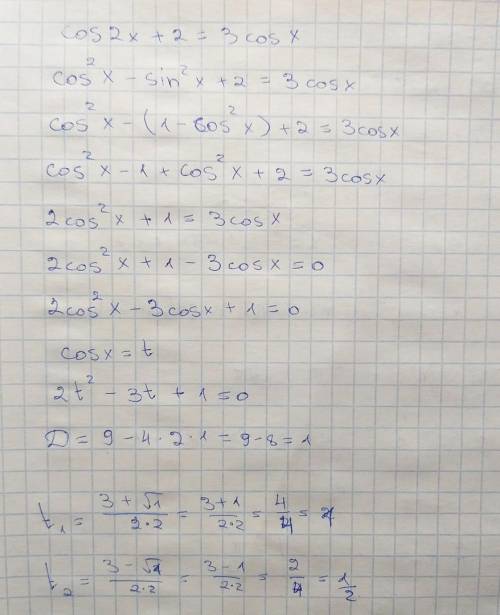 cos2x + 2 = 3cosx
cos²x - sin²x + 2 = 3cosx
cos²x - (1 - cos²x) + 2 = 3cosx
cos²x - 1 + cos²x + 2 = 3cosx
2cos²x + 1 = 3cosx
2cos²x + 1 - 3cosx = 0
2cos²x - 3cosx + 1 = 0
cosx = t
2t² - 3t + 1 = 0
D = 9 - 4·2·1 = 9 - 8 = 1
t₁ = (3 + √1)/(2·2) = (3+1)/(2·2) = 4/4 = 1
t₂ = (3 - √1)/(2·2) = (3-1)/(2·2) = 2/4 = 1/2